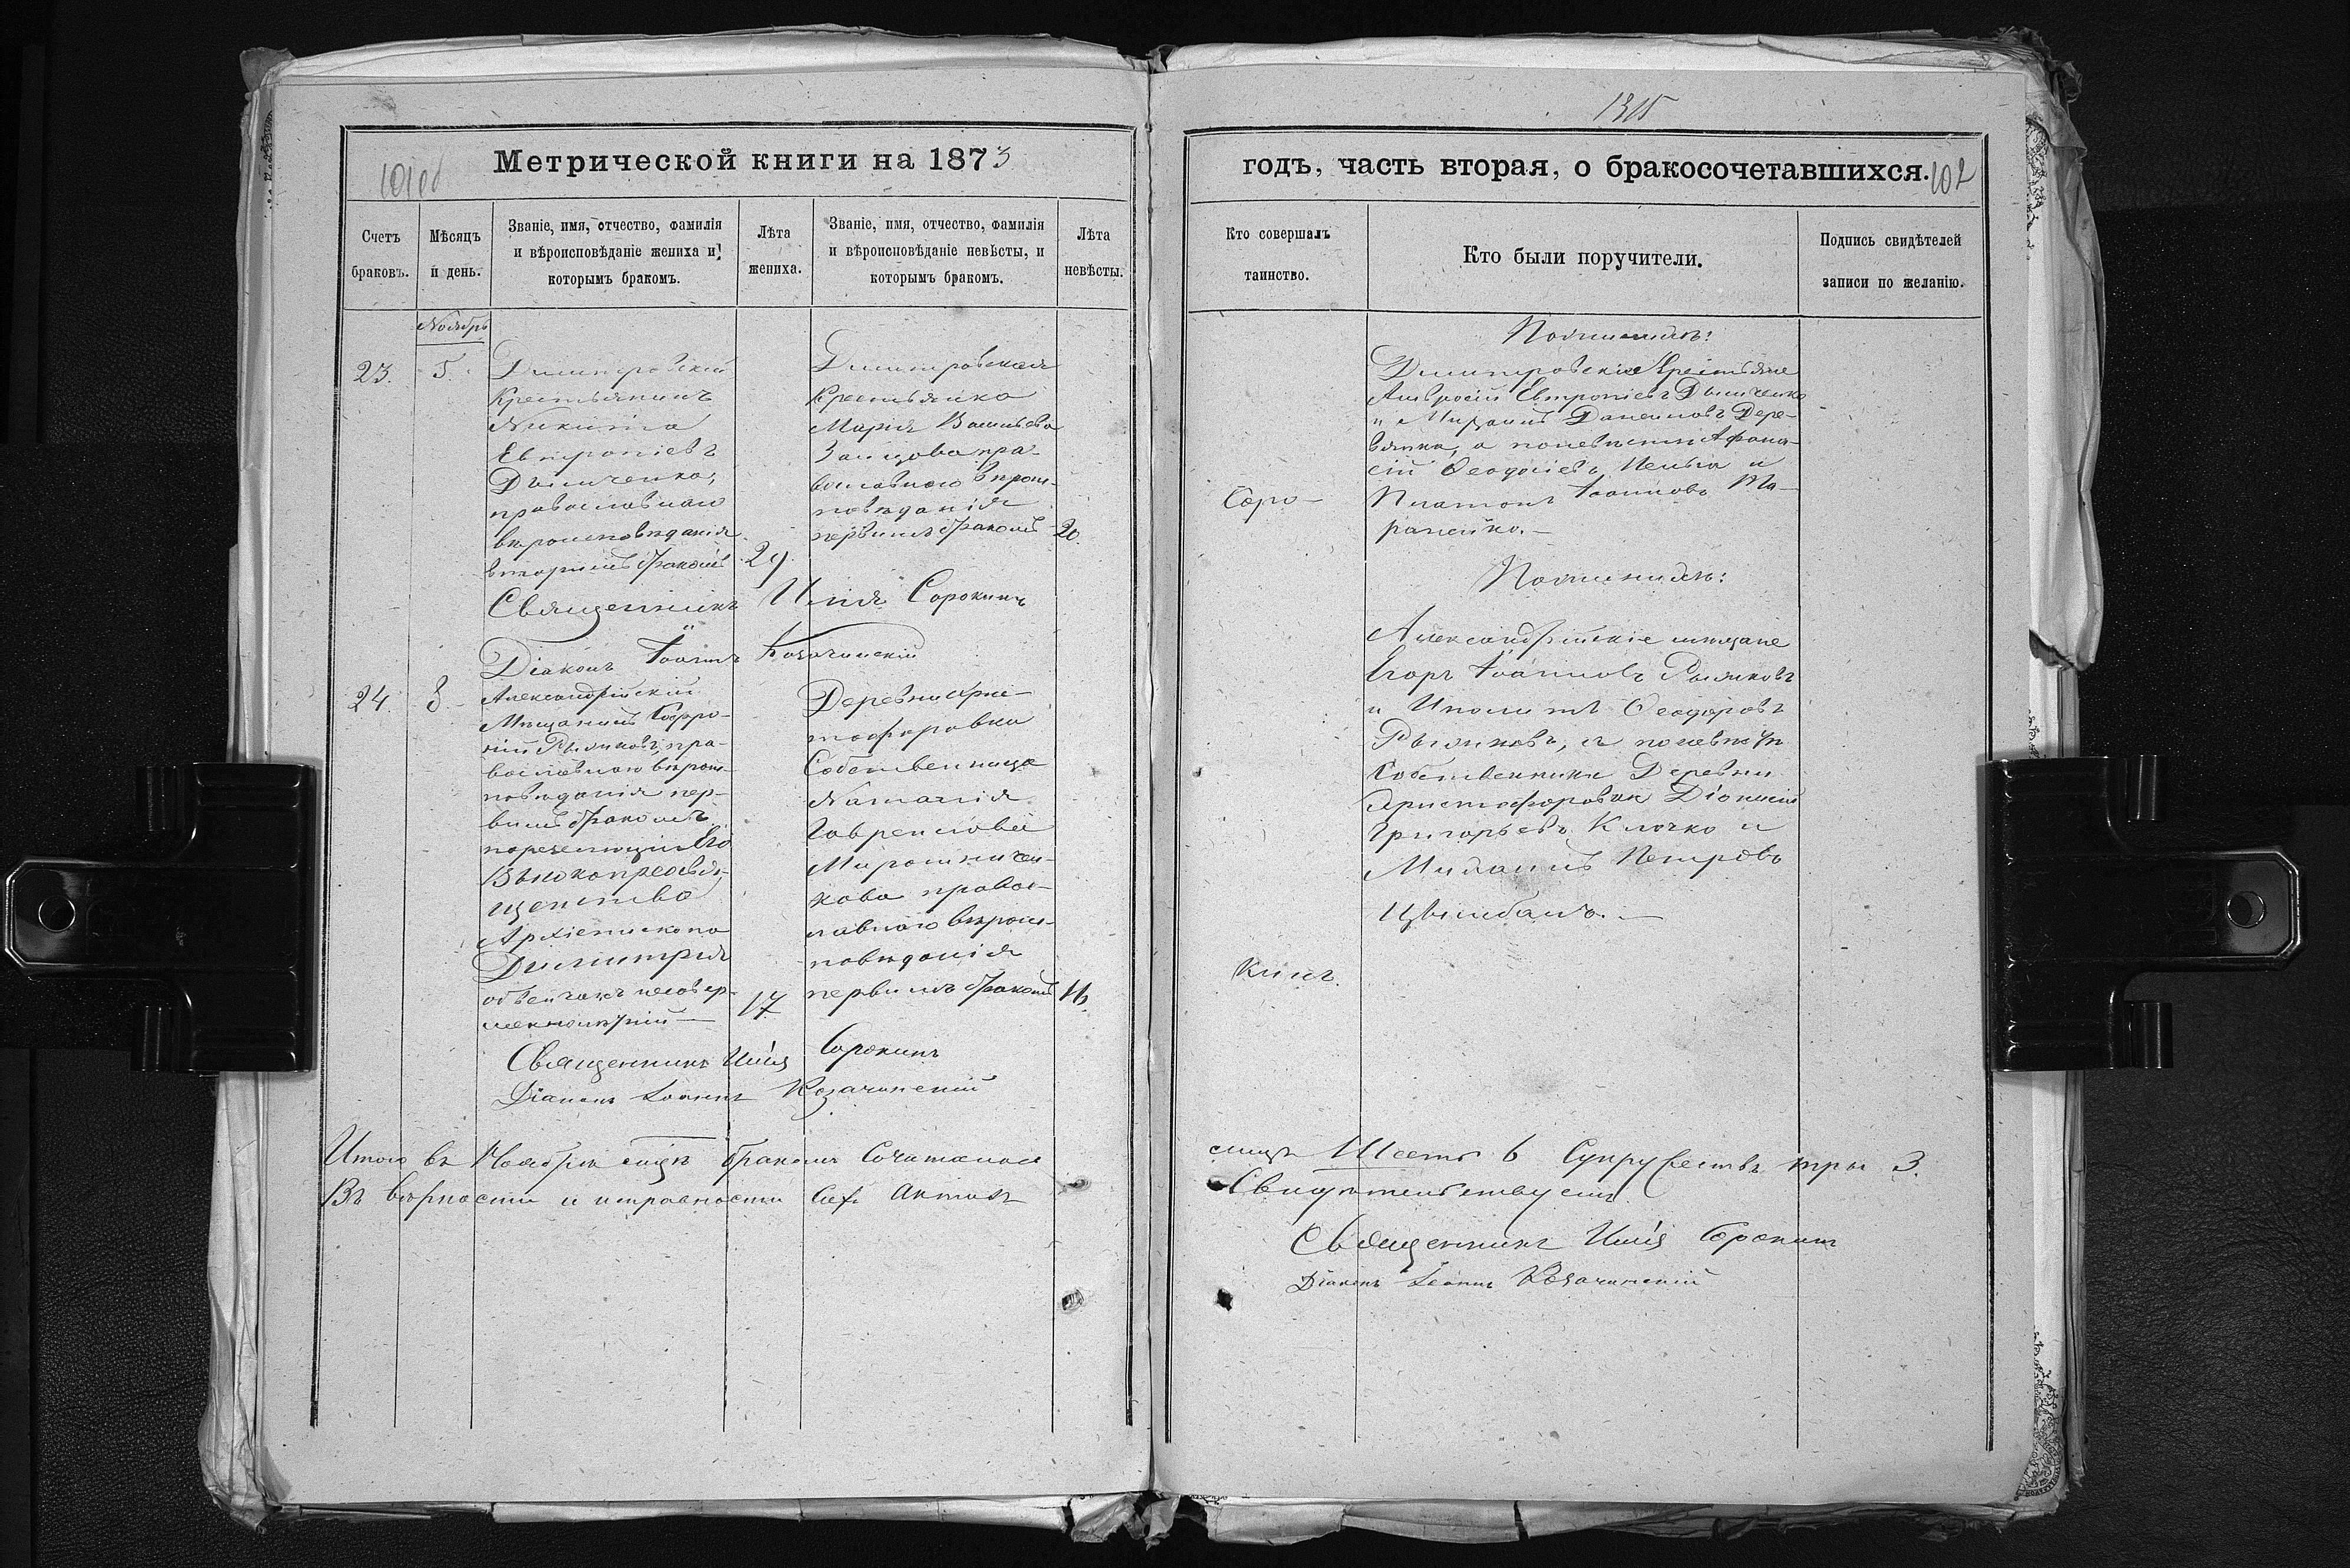 101об
Метрической книги на 1873
Счетъ браковъ.
Мѣсяцъ и день.
Званіе, имя, отчество, фамилія и вѣроисповѣданіе жениха и которымъ бракомъ.
Лѣта жениха.
Званіе, имя, отчество, фамилія и вѣроисповѣданіе невѣсты, и которымъ бракомъ.
Лѣта невѣсты.
Ноябрь
23.
5.
Димитровскій
Крестьянинъ
Никита
Евтропіевъ
Дымченко,
православнаго
вѣроисповѣданія
вторымъ бракомъ
29
Димитровская
Крестьянка
Марія Васильева
Заицова пра-
вославнаго вѣроис-
повѣданія
первымъ бракомъ
20.
Священникъ Илія Сорокинъ
Діаконъ Іоаннъ Козачинскій
24
8
Александрійскій
Мѣщанинъ Софро-
ній Рыжковъ, пра-
вославнаго вѣроис-
повѣданія пер-
вымъ бракомъ.
по резолюціи Его
Высокопреосвя-
щенства
Архіепископа
Димитрія
обвѣнчанъ несовер-
шеннолѣтній —
17
Деревни Хрис-
тофоровки
Собственница
Наталія
Гавріилова
Мирошничен-
кова правос-
лавнаго вѣроис-
повѣданія
первымъ бракомъ
16.
Священникъ Илія Сорокинъ
Діаконъ Іоаннъ Козачинскій
Итого въ Ноябрѣ бракомъ Сочеталось
Въ вѣрности и исправности сих актовъ
1315
годъ, часть вторая, о бракосочетавшихся.
102
Кто совершалъ таинство.
Кто были поручители.
Подпись свидѣтелей записи по желанію.
По женихѣ:
Димитровскіе Крестьяне
Амвросій Евтропіевъ Дымченко
и Михаилъ Даниловъ Дере-
вянка, а по невѣстѣ Афана-
сій Ѳеодосіевъ и
Платонъ Іоанновъ Та-
раненко. —
Соро-
По женихѣ:
Александрійскіе мѣщане
Егоръ Іоанновъ Рыжковъ
и Иполитъ Ѳеодоровъ
Рыжковъ, а по невѣстѣ
Собственники Деревни
Христофоровки Діонисій
Григорьевъ Клочко и
Михаилъ Петровъ
Цымбалъ. —
кинъ.
лицъ Шесть 6 Супружествъ три 3.
Свидѣтельствуемъ
Священникъ Илія Сорокинъ
Діаконъ Іоаннъ Козачинскій